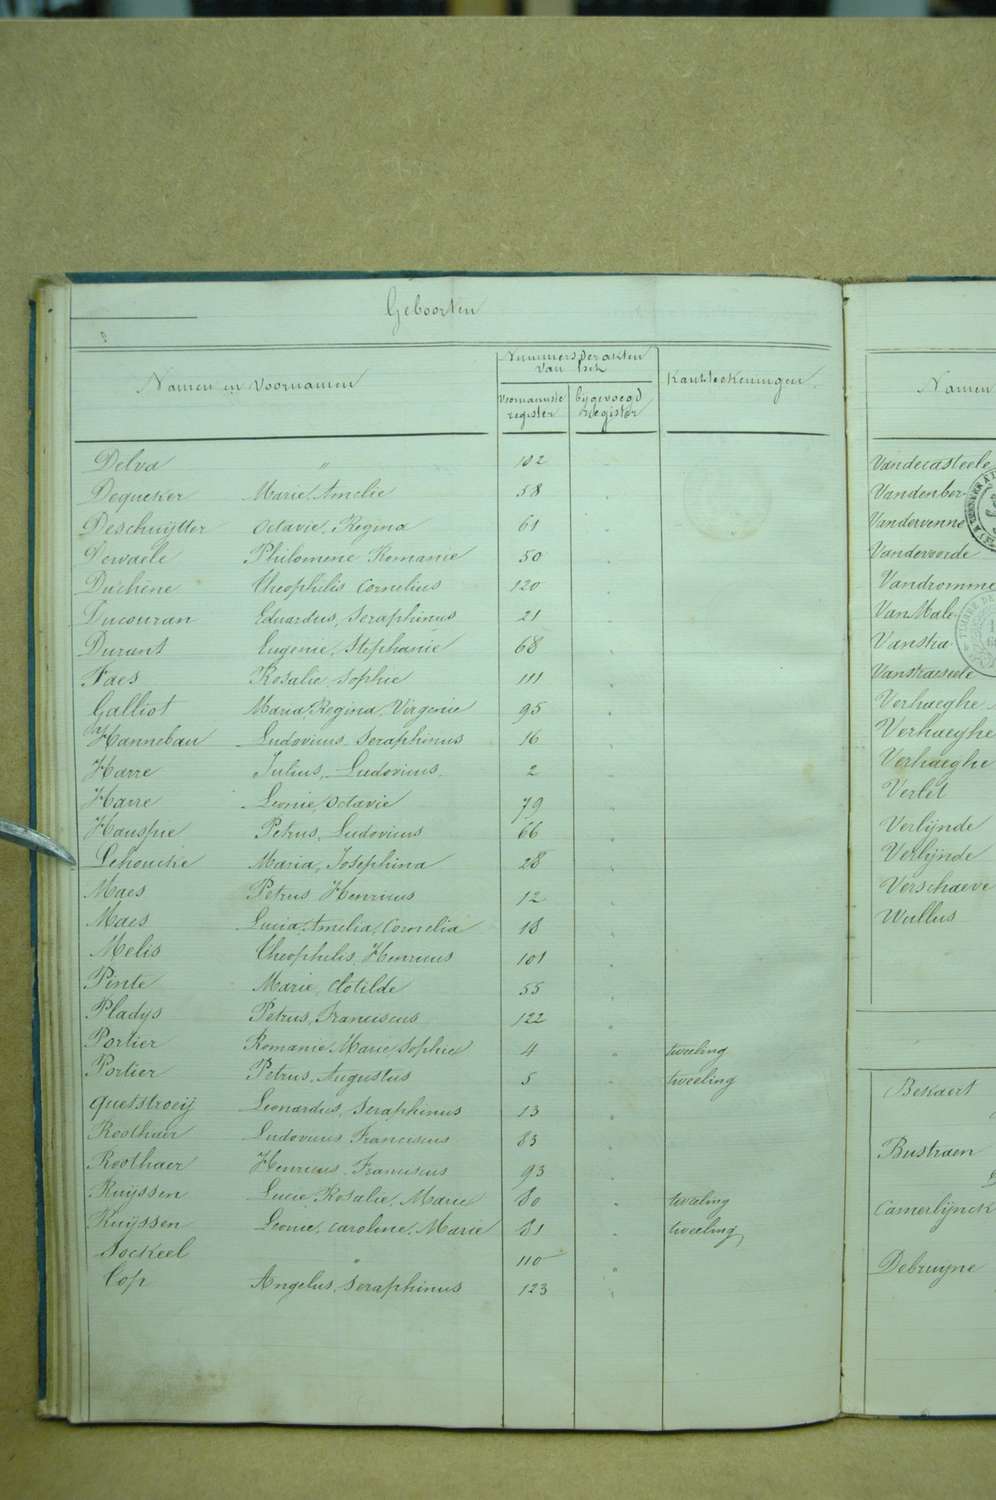 Geboorten
Namen en Voornamen
Nummers der akten
van het
Voornaamste register
bijgevoegd Register
Kantteekeningen
Delva " 102
Dequeker Marie, Amelie 58
Deschuytter Octavie, Regina 61
Dewaele Philomene Romanie 50
Duchêne Theophilis Cornelius 120
Ducouran Eduardus, Seraphinus 21
Durant Eugenie, Stephanie 68
Faes Rosalie, Sophie 111
Galliot Maria, Regina, Virgenie 95
Hannebau Ludovicus Seraphinus 16
Harre Julius, Ludovicus, 2
Harre Leonie, Octavie 79
Hauspie Petrus, Ludovicus 66
Lehouche Maria, Josephina 28
Maes Petrus Henricus 12
Maes Lucia, Amelia, Cornelia 18
Melis Theophilis, Henricus 101
Pinte Marie, Clotilde 55
Pladys Petrus, Franciscus 122
Portier Romanie, Marie, Sophie 4 tweeling
Portier Petrus, Augustus 5 tweeling
Quetstroeij Leonardus, Seraphinus 13
Roothaer Ludovicus Franciscus 83
Roothaer Henricus, Franciscus 93
Ruijssen Lucie, Rosalie, Marie 80 tweeling
Ruijssen Leonie, Caroline, Marie 81 tweeling
Sockeel " 110
Cop Angelus, Seraphinus 123
Namen
Vandecasteele
Vandenber
Vandervenne
Vandevoorde
Vandromme
Van Male
Vanstra
Vanstraeseele
Verhaeghe
Verhaeghe
Verhaeghe
Verlet
Verlijnde
Verlijnde
Verschaeve
Wullus
Bekaert
Bustraen
Camerlijnck
Debruijne